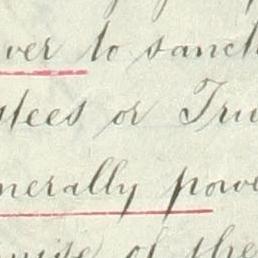 ver to sanct
stees or Tru
nerally powe
of the